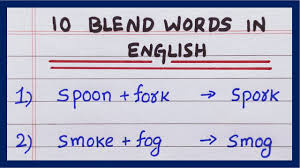 10 BLEND WORDS IN
ENGLISH
1) Spoon + fork → Spork
2) Smoke + fog → Smog